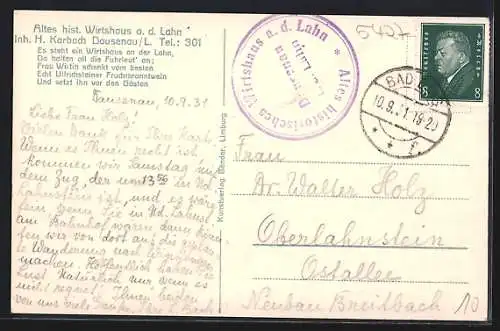 Altes hist. Wirtshaus a. d. Lahn
Inh. H. Karbach Dausenau/L. Tel.: 301
Es steht ein Wirtshaus an der Lahn,
Da halten all die Fuhrleut' an;
Frau Wirtin schenkt vom besten
Edel Ullrichsteiner Fruchtbranntwein
Und setzt ihn vor den Gästen
Dausenau, 10.9.31
Liebe Frau Holz!
Vielen Dank für Ihre Karte.
Wenn es Ihnen recht ist
kommen wir Samstag mit
dem Zug, der um 13 56 in Nd.
Lahnstein ist, und es wäre
fein, wenn Sie in Nd. Lahnst.
am Bahnhof wären dann können
wir von dort auf die geplante
Wanderung nach
machen. Hoffentlich haben Sie
Lust. Natürlich nur wenn es
nicht regnet! Ihnen beiden
von uns viele
Kunstverlag Bender, Limburg
* Altes historisches Wirtshaus a. d. Lahn
Dausenau
Lahn
5427
Deutsches Reich
8 8
BAD
10.9.31.18-20
* * f
Frau
Dr. Walter Holz
Oberlahnstein
Ostallee
Neubau Breitbach
10